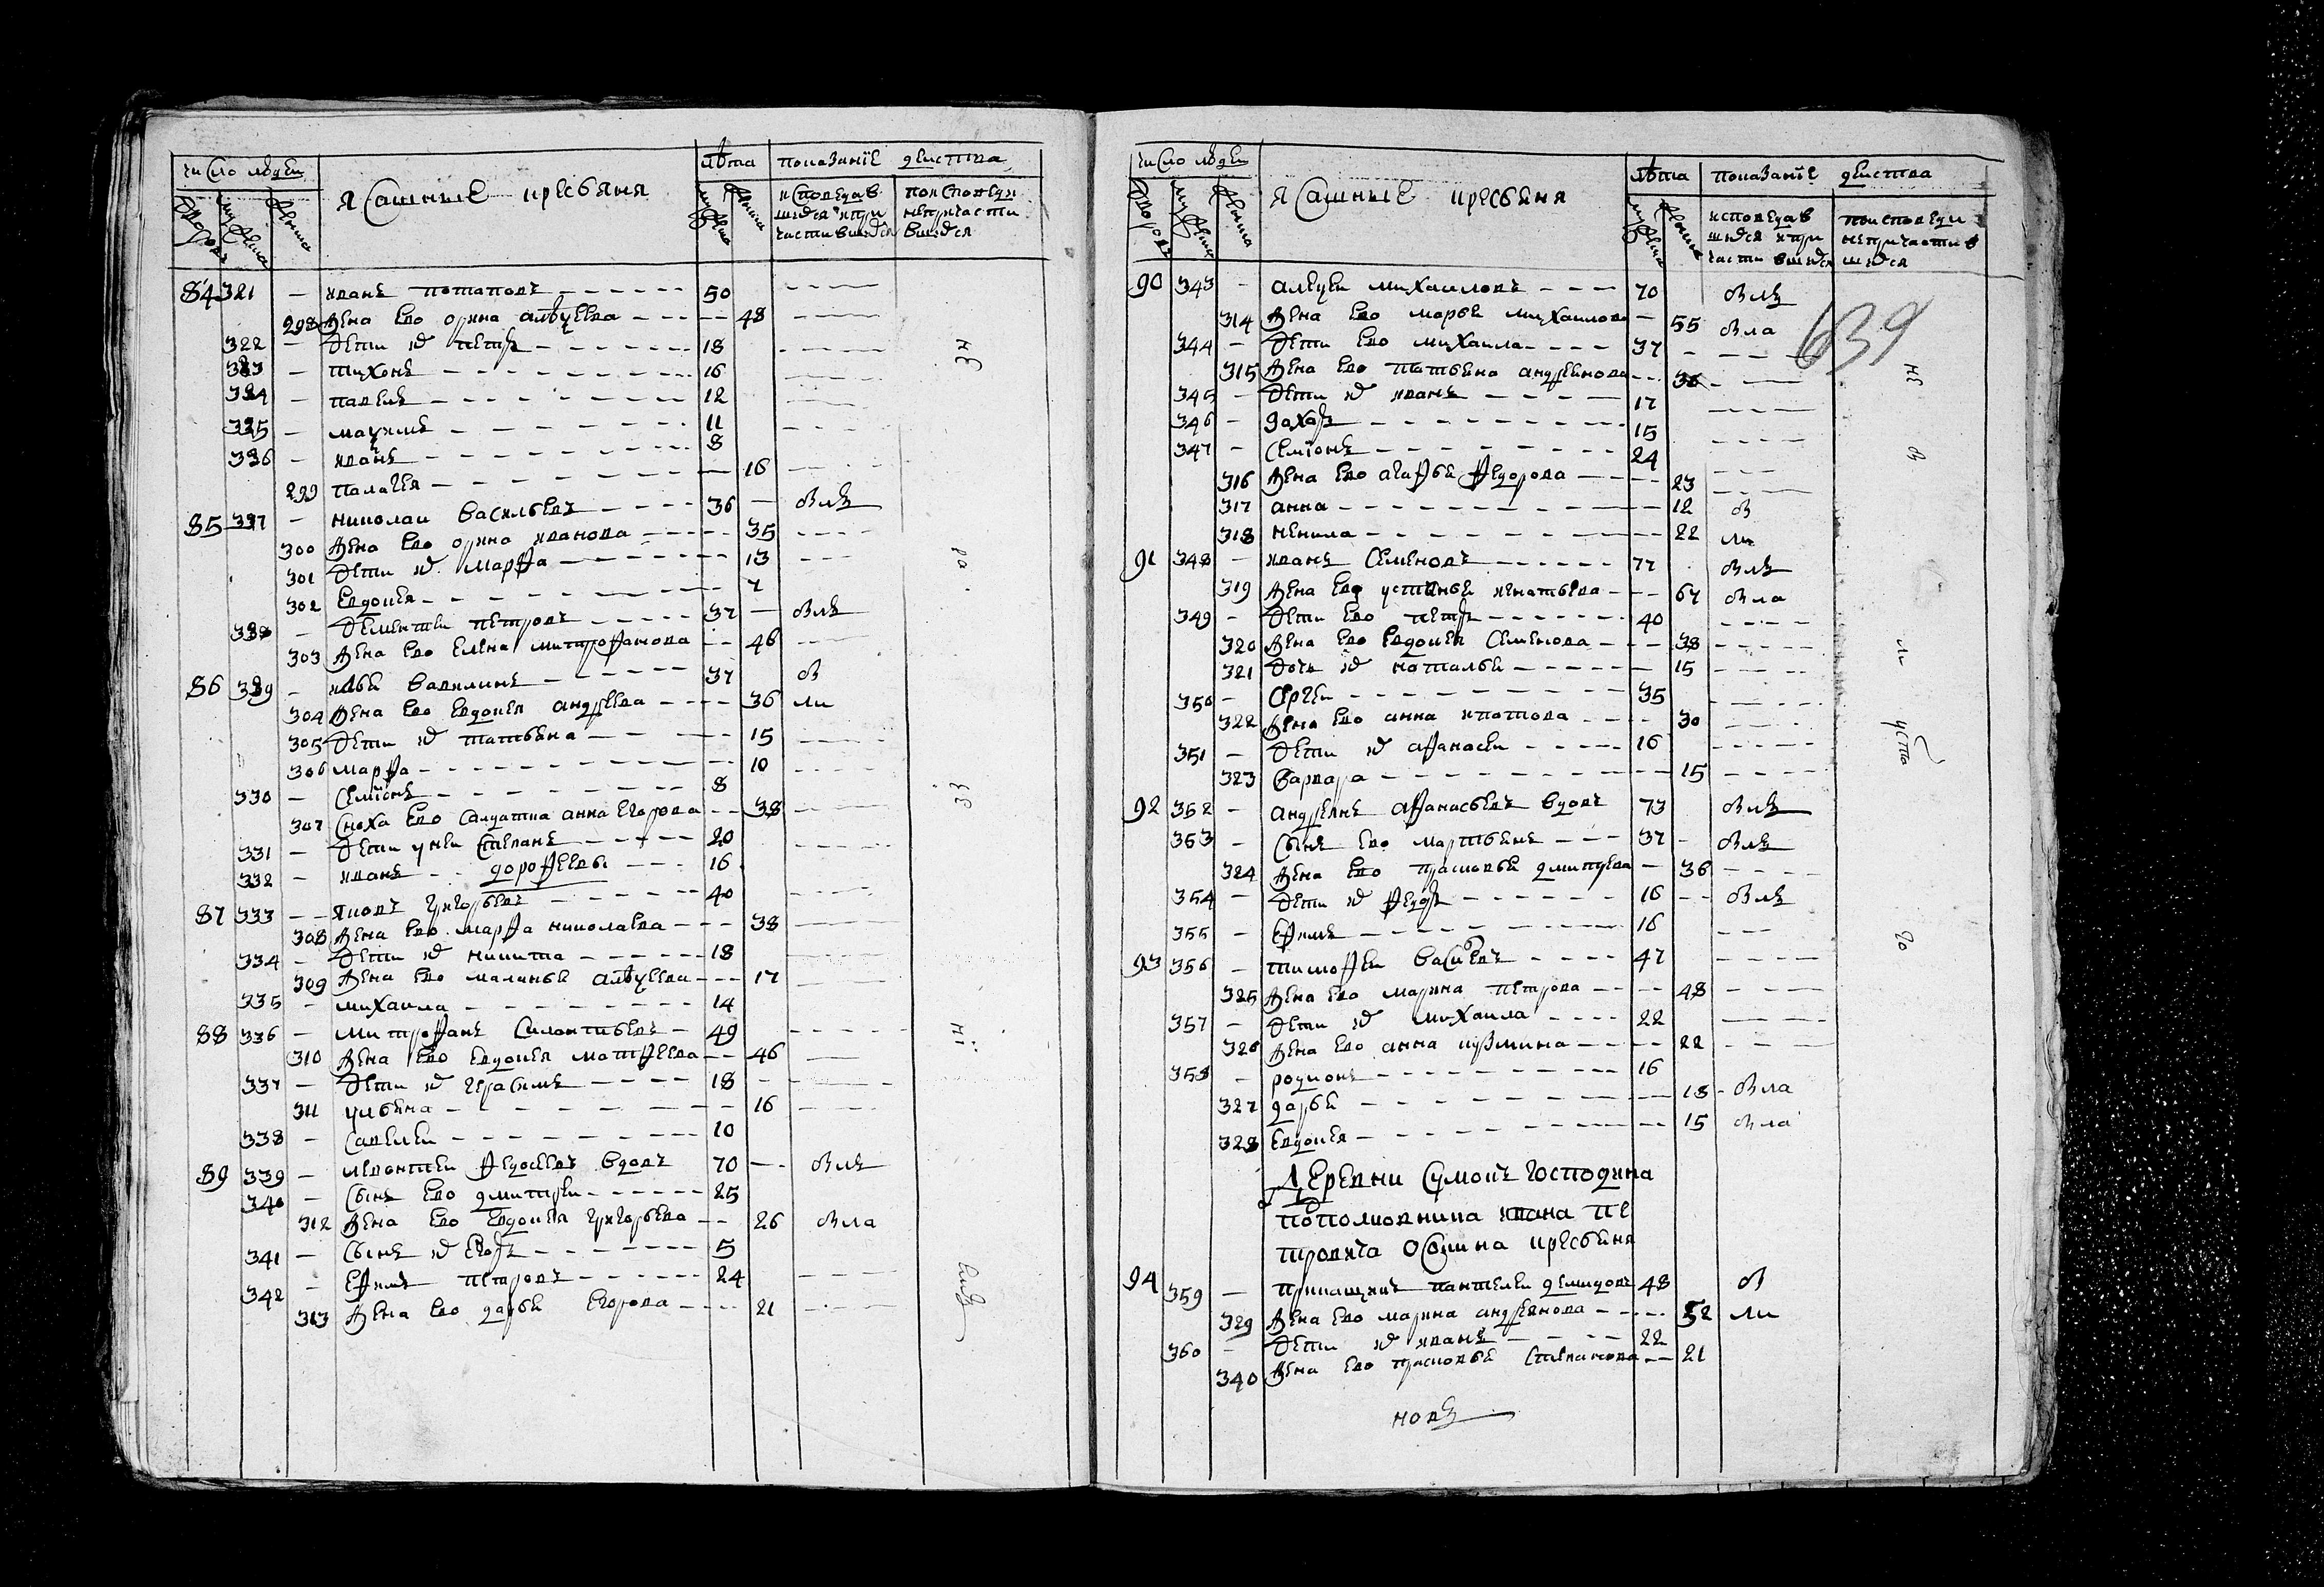 число людеи
ясашные кресьяня
лѣта
показание деиства
дворовъ
мужска
женска
мужска
женска
исповедав шихся и при частившихся
по исповеди непричасти вшихся
84 321 — иванъ потаповъ 50
298 жена ево орина алѣѯеева 48
322 — дети их петръ 18
323 — тихонъ 16
324 — павелъ 12
325 — маѯимъ 11
326 — иванъ 8
299 палагея 16
85 327 — николаи васильевъ 36 — былъ
300 жена ево орина иванова 35
301 дети их марфа 13
302 евдокея 7
328 — дементеи петровъ 37 — былъ
303 жена ево елена митрофанова 46
86 329 — вавилинъ 37 бы
304 жена ево евдокея андреева 36 ли
305 дети их татьяна 15
306 марфа 10
330 — семионъ 8
307 сноха ево салдатка анна егорова 38
331 — дети у неи степанъ 20
332 — иванъ дорофеевы 16
87 333 — яковъ григорьевъ 40
308 жена ево марфа николаева 38
334 — дети их никита 18
309 жена ево маланья алѣѯеева 17
335 — михаила 14
88 336 — митрофанъ силантьевъ 49
310 жена ево евдокея матфеева 46
337 — дети их герасимъ 18
311 ульяна 16
338 — савелеи 10
89 339 — левонтеи федосеевъ вдовъ 70 — былъ
340 — сынъ ево дмитреи 25
312 жена ево евдокея григорьева 26 была
341 — сынъ их егоръ 5
342 — ефимъ петровъ 24
313 жена ево дарья егорова 21
число людеи
ясашные кресьяня
лѣта
показание деиства
дворовъ
мужска
женска
мужска
женска
исповедав шихся и при частившихся
по исповеди непричастив шихся
639
90 343 — алеѯеи михаиловъ 70 былъ
314 жена ево марья михаилова 55 была
344 — дети ево михаила 37
315 жена ево татьяна андреинова 36
345 — дети их иванъ 17
346 — захаръ 15
347 — семионъ 24
316 жена ево агафья федорова 23
317 анна 12 бы
318 ненила 22 ли
91 348 — иванъ семеновъ 77 былъ
319 жена ево устинья игнатьева 67 была
349 — дети ево петръ 40
320 жена ево евдокея семенова 38
321 дочь их наталья 15
350 — сергеи 35
322 жена ево анна ипатова 30
351 — дети их афанасеи 16
323 варвара 15
92 352 — андреянъ афанасьевъ вдовъ 73 былъ
353 — сынъ ево мартьянъ 37 — былъ
324 жена ево прасковья дмитреева 36
354 — дети их федоръ 16 былъ
355 — ефимъ 16
93 356 — тимофеи васильевъ 47
325 жена ево марина петрова 48
357 — дети их михаила 22
326 жена ево анна кузмина 22
358 — родионъ 16
327 дарья 18 — была
328 евдокея 15 была
деревни сумокъ господина
потполковника ивана пе
тровича осокина кресьяня
94 359 — прикащикъ пантелеи демидовъ 48 бы
329 жена ево марина андреянова 52 ли
360 — дети их иванъ 22
340 жена ево прасковья степанова 21